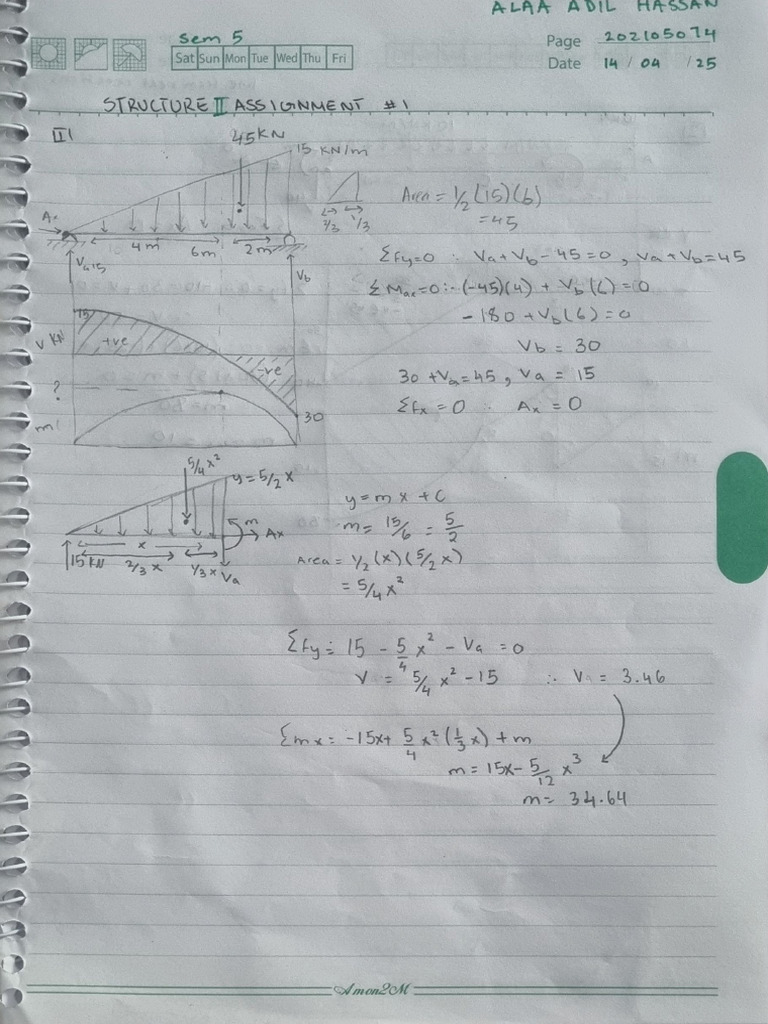 ALAA ADIL HASSAN
Sem 5
Page 202105074
Sat Sun Mon Tue Wed Thu Fri
Date 14 / 04 / 25
STRUCTURE II ASSIGNMENT #1
45KN
15 KN/m
Area = 1/2 (15)(6)
= 45
2/3 1/3
Ax
4m 6m 2m
Va 15
Vb
Σfy=0 ∴ Va + Vb - 45 = 0, Va + Vb = 45
=0 ∴ (-45)(4) + Vb(6) = 0
- 180 + Vb(6) = 0
Vb = 30
30 + Va = 45, Va = 15
Σfx = 0 ∴ Ax = 0
15
V KN
+ve
-ve
?
30
m
5/4 x²
y = 5/2 x
m
Ax
x
15 KN 2/3 x 1/3 x Va
y = m x + c
m = 15/6 = 5/2
Area = 1/2 (x) (5/2 x)
= 5/4 x²
Σfy = 15 - 5/4 x² - Va = 0
V = 5/4 x² - 15 ∴ V = 3.46
Σmx = -15x + 5/4 x² (1/3 x) + m
m = 15x - 5/12 x³
m = 34.64
Amon2M